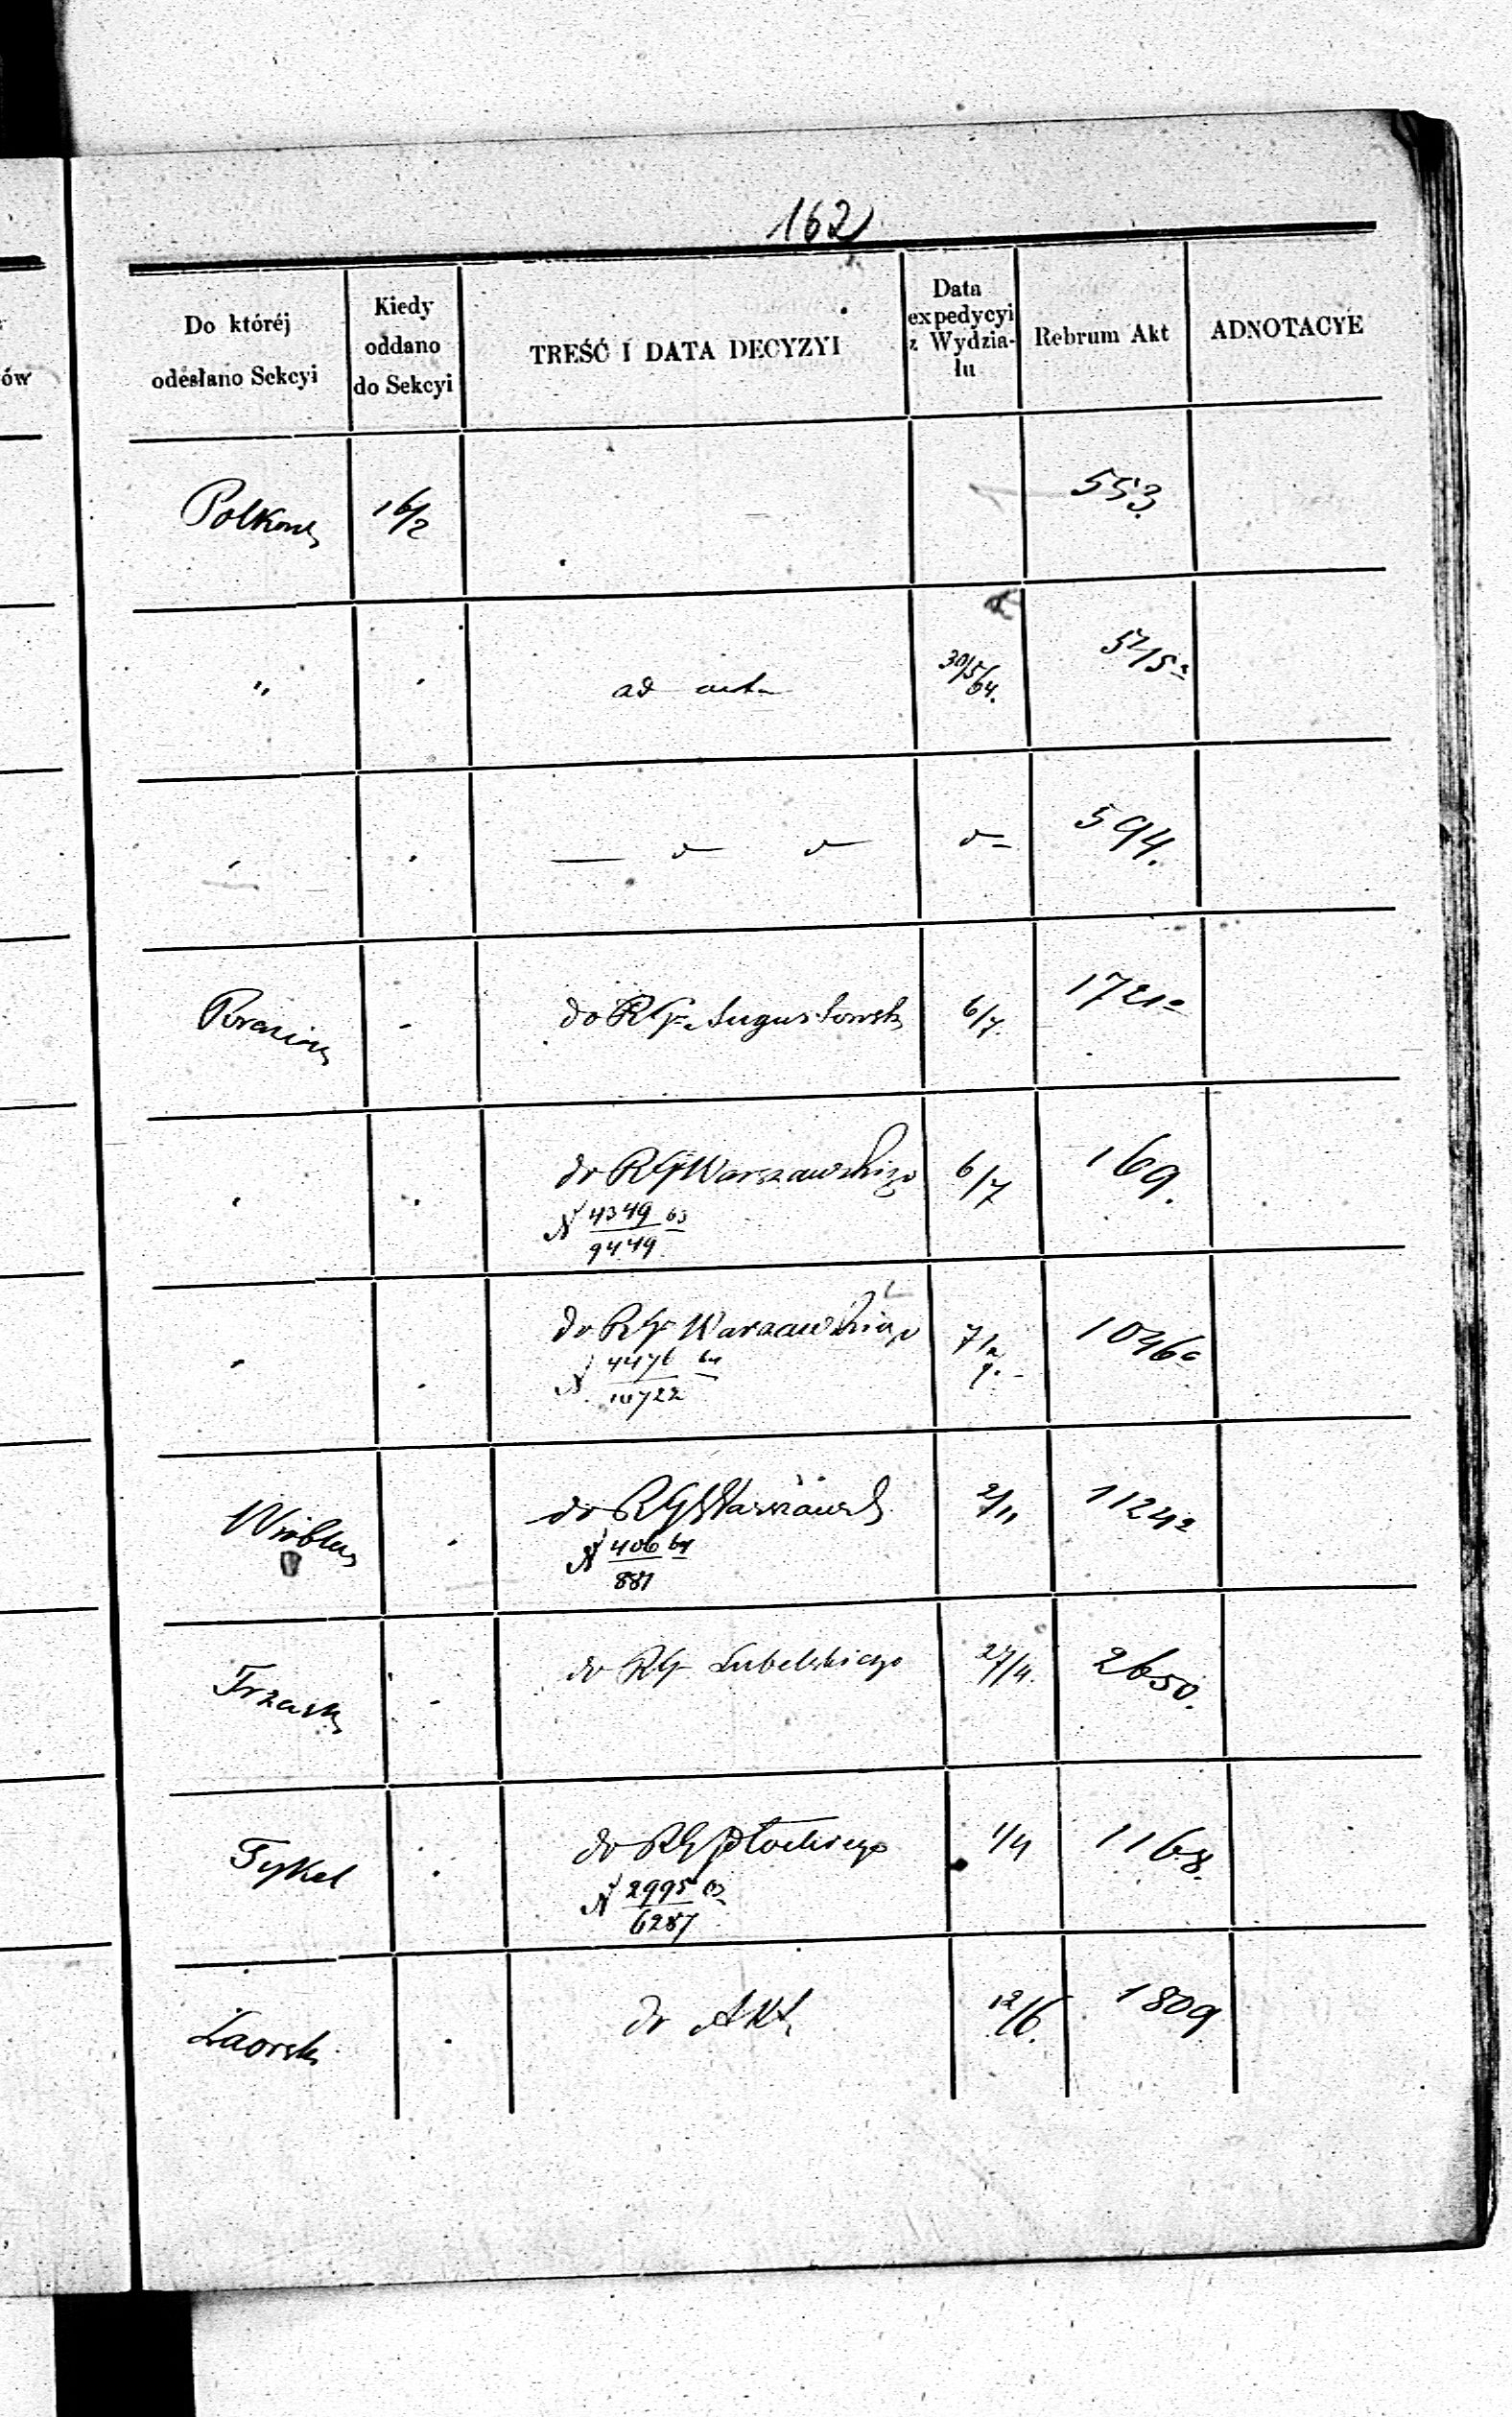 162
ów
Do któréj
odesłano Sekcyi
Kiedy
oddano
do Sekcyi
TREŚĆ I DATA DECYZYI
Data
expedycyi
z Wydzia-
łu
Rebrum Akt
ADNOTACYE
16/2
553.
"
ad acta
30/5/64.
594.
do RG Augustowsk
6/7.
1721a
do RG Warszawskiego
N 4349 63
9449
6/7
169.
do RG Warszawskiego
N 4476 64
10722
1046a
do RG Warszawsk
N 406 64
881
2/11
do RG Lubelskiego
27/4.
2650.
Tykel
do RG Płockiego
N 2995 63
6287
1/4
1168.
do Akt
12/6.
1809